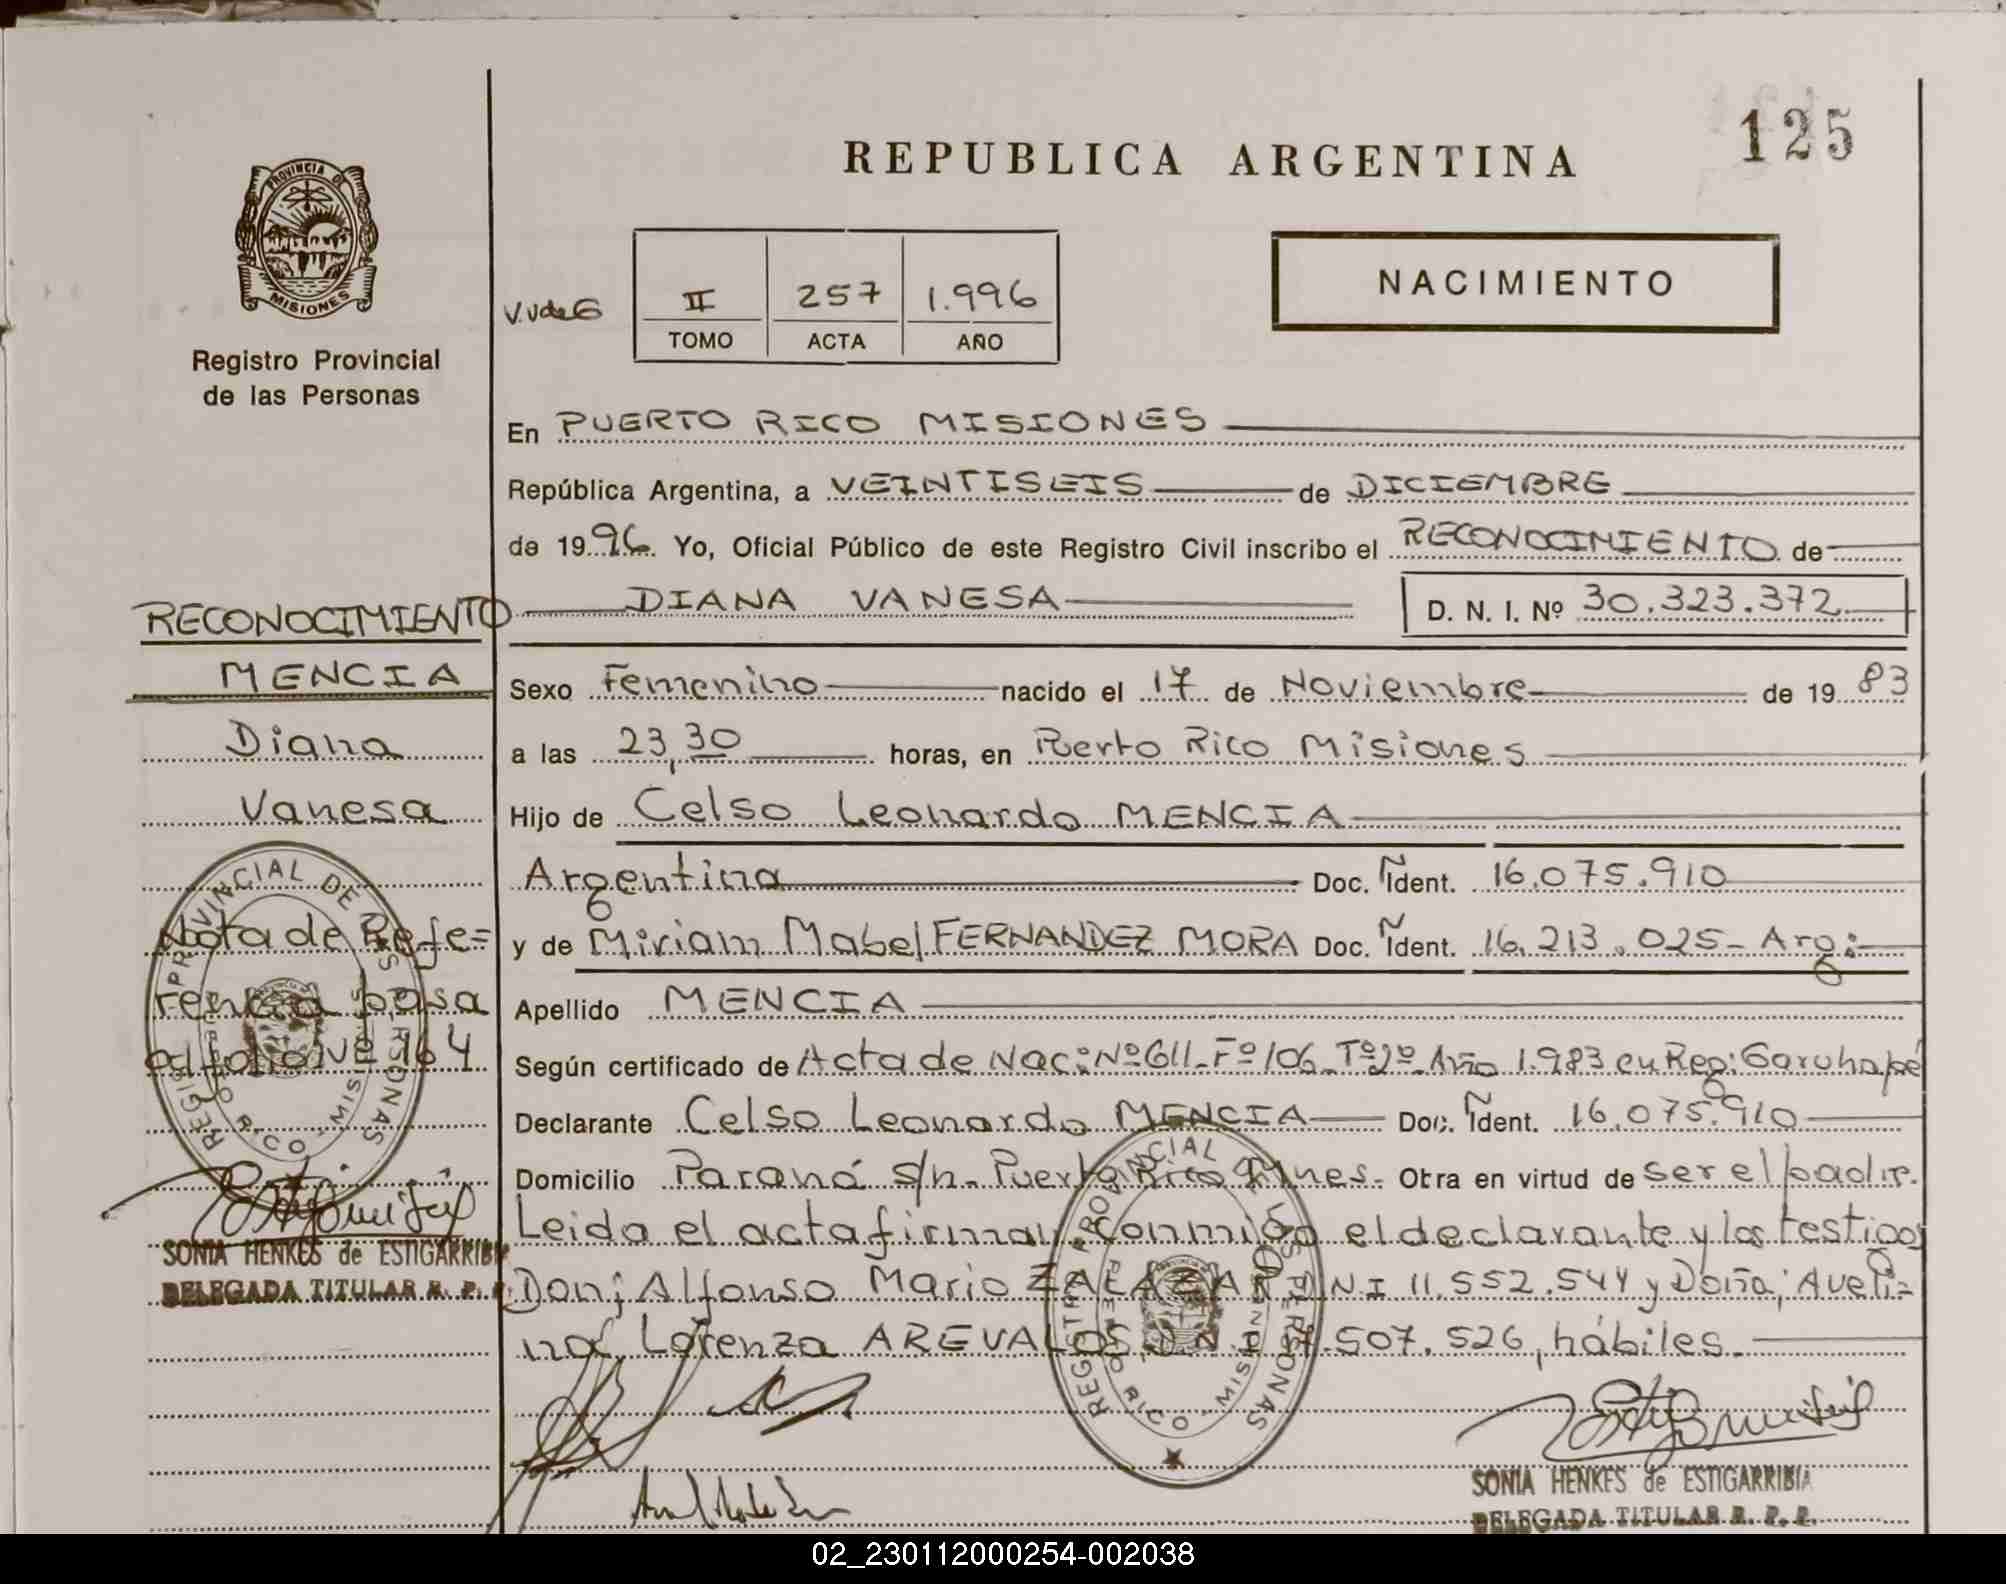 125
REPUBLICA ARGENTINA
PROVINCIA DE MISIONES
Registro Provincial
de las Personas
NACIMIENTO
II 257 1.996
TOMO ACTA AÑO
En PUERTO RICO MISIONES
República Argentina, a VEINTISEIS de DICIEMBRE
de 1996. Yo, Oficial Público de este Registro Civil inscribo el RECONOCIMIENTO de
DIANA VANESA D. N. I. Nº 30.323.372
RECONOCIMIENTO
MENCIA
Diana
Vanesa
Nota de Refe=
rencia pasa
al folio Nº 164
REGISTRO PROVINCIAL DE LAS PERSONAS
PUERTO RICO - MISIONES
SONIA HENKES de ESTIGARRIBIA
DELEGADA TITULAR R. P. P.
Sexo Femenino nacido el 17 de Noviembre de 1983
a las 23,30 horas, en Puerto Rico Misiones
Hijo de Celso Leonardo MENCIA
Argentina Doc. Ident. 16.075.910
y de Miriam Mabel FERNANDEZ MORA Doc. Ident. 16.213.025- Arg:
Apellido MENCIA
Según certificado de Acta de Nac: Nº 611- Fº 106- Tº 2º Año 1.983 en Reg: Garuhapé
Declarante Celso Leonardo MENCIA Doc. Ident. 16.075.910
Domicilio Paraná s/n- Puerto Rico Mnes- Otra en virtud de ser el padre.
Leida el acta firman conmigo el declarante y los testigos
Don; Alfonso Mario ZALAZAR D N I 11.552.544 y Doña; Aveli=
na Lorenza AREVALOS D.N.I 7.507.526, hábiles.
REGISTRO PROVINCIAL DE LAS PERSONAS
PUERTO RICO - MISIONES
SONIA HENKES de ESTIGARRIBIA
DELEGADA TITULAR R. P. P.
02_230112000254-002038